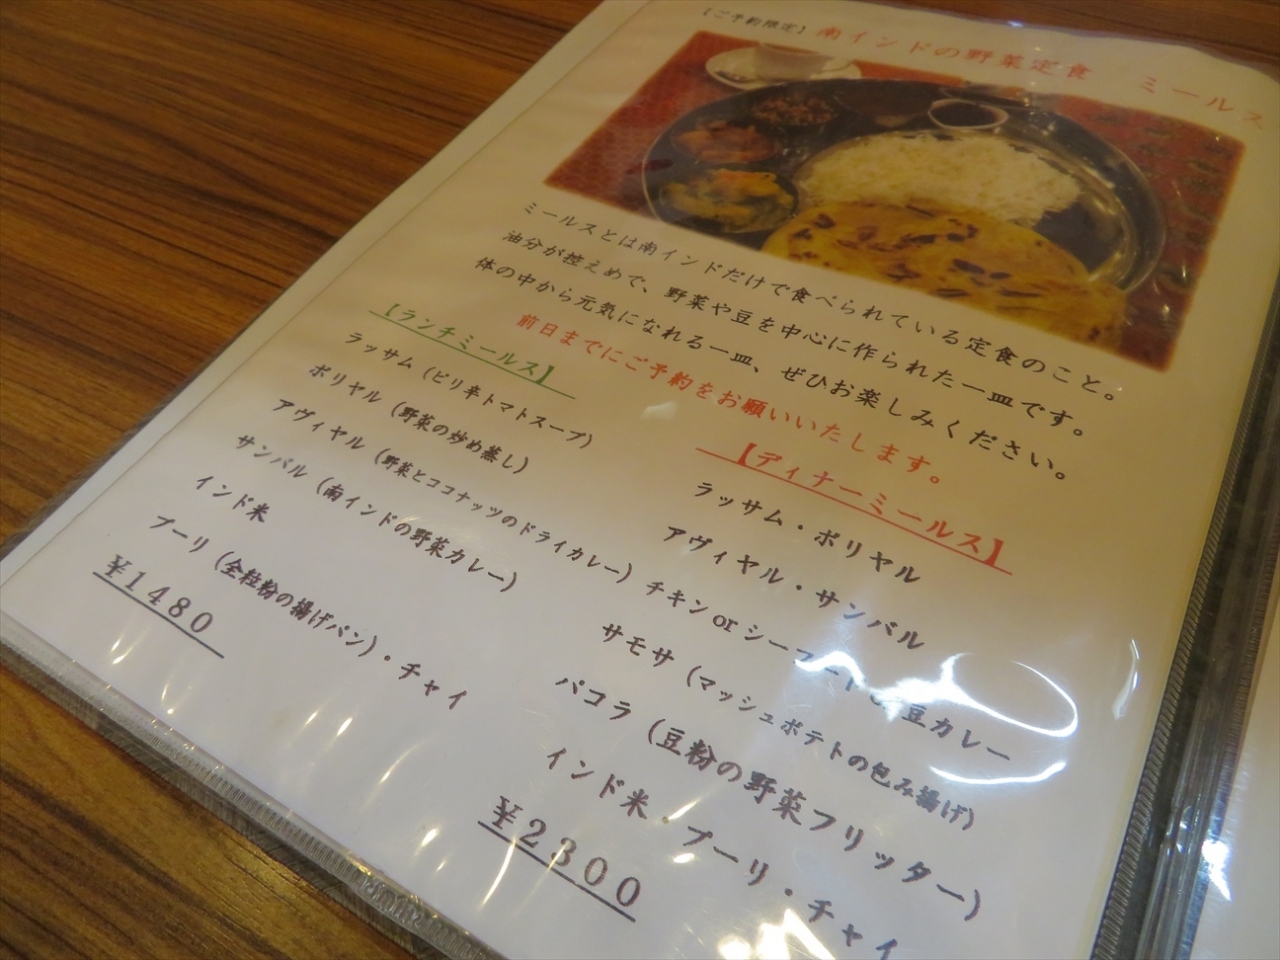 【ご予約限定】南インドの野菜定食 ミールス
ミールスとは南インドだけで食べられている定食のこと。
油分が控えめで、野菜や豆を中心に作られた一皿です。
体の中から元気になれる一皿、ぜひお楽しみください。
前日までにご予約をお願いいたします。
【ランチミールス】
ラッサム（ピリ辛トマトスープ）
ポリヤル（野菜の炒め蒸し）
アヴィヤル（野菜とココナッツのドライカレー）
サンバル（南インドの野菜カレー）
インド米
プーリ（全粒粉の揚げパン）・チャイ
￥1480
【ディナーミールス】
ラッサム・ポリヤル
アヴィヤル・サンバル
チキン or シーフード 豆カレー
サモサ（マッシュポテトの包み揚げ）
パコラ（豆粉の野菜フリッター）
インド米・プーリ・チャイ
￥2300